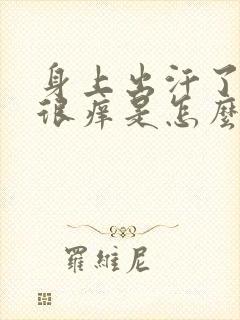 身上出汗了
很痒是怎麼
羅維尼